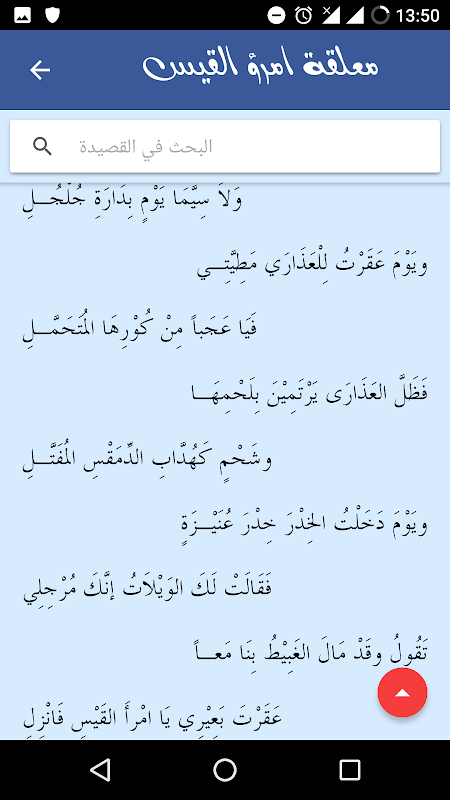 13:50
معلقة امرؤ القيس
البحث في القصيدة
وَلاَ سِيَّمَا يَوْمٍ بِدَارَةِ جُلْجُـــلِ
ويَوْمَ عَقَرْتُ لِلْعَذَارَي مَطِيَّتِـــي
فَيَا عَجَباً مِنْ كُوْرِهَا المُتَحَمَّـــلِ
فَظَلَّ العَذَارَى يَرْتَمِيْنَ بِلَحْمِهَـــا
وشَحْمٍ كَهُدَّابِ الدِّمَقْسِ المُفَتَّـــلِ
ويَوْمَ دَخَلْتُ الخِدْرَ خِدْرَ عُنَيْـــزَةٍ
فَقَالَتْ لَكَ الوَيْلَاتُ إنَّكَ مُرْجِلِي
تَقُولُ وقَدْ مَالَ الغَبِيْطُ بِنَا مَعـــاً
عَقَرْتَ بَعِيْرِي يَا امْرأَ القَيْسِ فَانْزِلِ